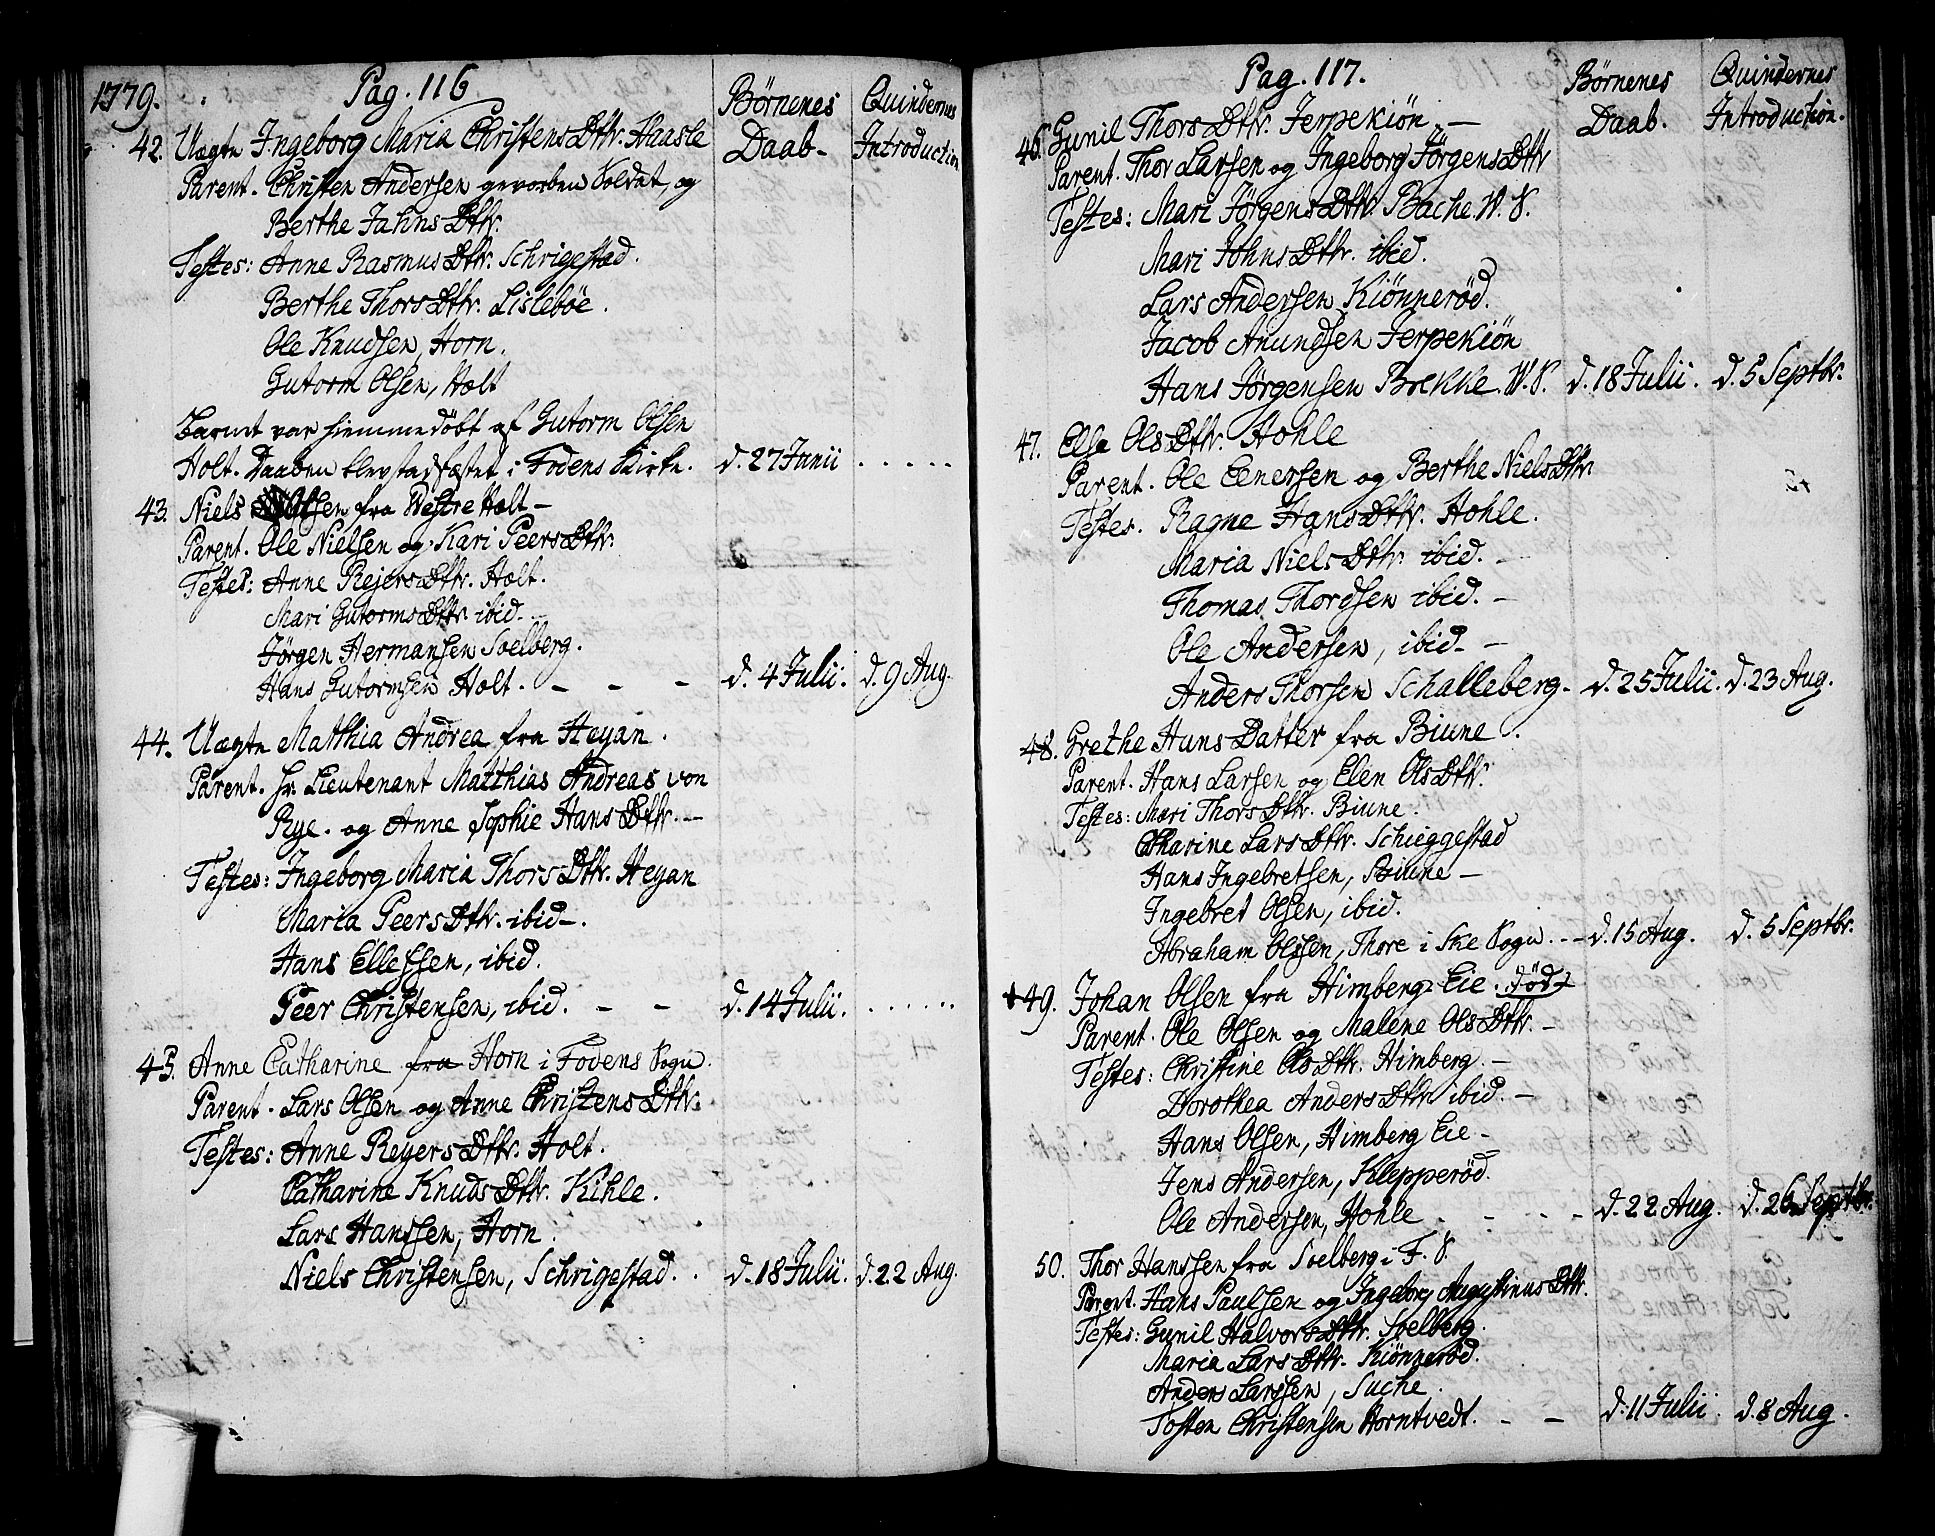 1779.
Pag. 116
Børnenes Daab-
Quindernes Introduction
42. Uægte Ingeborg Maria ChristensDttr. Haasle
Parent. Christen Andersen gevorben Soldat, og
Berthe JahnsDttr.
Testes: Anne RasmusDttr. Schrigestad.
Berthe ThorsDttr. Lislebøe.
Ole Knudsen, Horn.
Gutorm Olsen, Holt
Barnet var hiemmedøbt af Gutorm Olsen
Holt. Daaben blev stadfæstet i Fodens Kirke. d. 27 Junii . . . . . .
43. Niels Olsen fra Westre Holt-
Parent. Ole Nielsen og Kari PeersDttr.
Testes: Anne RejersDttr. Holt.
Mari GutormsDttr. ibid.
Jørgen Hermansen Soelberg.
Hans Gutormsen Holt. - - - d. 4 Julii. d. 9 Aug.
44. Uægte Matthia Andrea fra Heyan.
Parent. Hr. Lieutenant Matthias Andreas von
Rye. og Anne Sophie HansDttr. -
Testes: Ingeborg Maria ThorsDttr. Heyan
Maria PeersDttr. ibid-.
Hans Ellefsen, ibid.
Peer Christensen, ibid. - - d. 14 Julii. . . . . . .
45. Anne Catharine fra Horn i Fodens Sogn.
Parent. Lars Olsen og Anne ChristensDttr.
Testes: Anne ReyersDttr. Holt.
Catharine KnudsDttr. Kihle.
Lars Hanssen, Horn.
Niels Christensen, Schrigestad. . d. 18 Julii. d. 22 Aug.
Pag. 117.
Børnenes Daab.
Quindernes Introduction.
46. Gunil ThorsDttr. Jerpekiøn. -
Parent. Thor Larsen og Ingeborg JørgensDttr
Testes: Mari JørgensDttr. Bache. W. S.
Mari JohnsDttr. ibid.
Lars Andersen Kiønnerød.
Jacob Anundsen Jerpekiøn
Hans Jørgensen Brekke. W. S. d. 18 Julii. d. 5 Septbr.
47. Else OlsDttr. Hohle
Parent. Ole Eenersen og Berthe NielsDttr.
Testes. Ragne HansDttr. Hohle.
Maria NielsDttr. ibid. -
Thomas Thordsen ibid. -
Ole Andersen, ibid- -
Anders Thorsen Schalleberg. - d. 25 Julii. d. 23 Aug.
48. Grethe Hans Datter fra Biune.
Parent. Hans Larsen og Elen OlsDttr.
Testes: Mari ThorsDttr. Biune.
Catharine LarsDttr. Schieggestad
Hans Ingebretsen, Biune -
Ingebret Olsen, ibid.
Abraham Olssen, Thore i Ske Sogn. - - d. 15 Aug. d. 5 Septbr.
+ 49. Johan Olsen fra Himberg-Eie. død
Parent. Ole Olsen og Malene OlsDttr. -
Testes: Christine OlsDttr. Himberg. -
Dorothea AndersDttr ibid. -
Hans Olsen, Himberg Eie -
Jens Andersen, Klepperød.
Ole Andersen, Hohle - - - - d. 22 Aug. d. 26 Septbr.
50. Thor Hanssen fra Soelberg i F. S.
Parent. Hans Paulsen og Ingeborg AugustinusDttr.
Testes: Gunil HalvorsDttr. Soelberg.
Maria LarsDttr. Kiønnerød.
Anders Larssen, Suche.
Tosten Christensen Horntvedt. - - d. 11 Julii. d. 8 Aug.